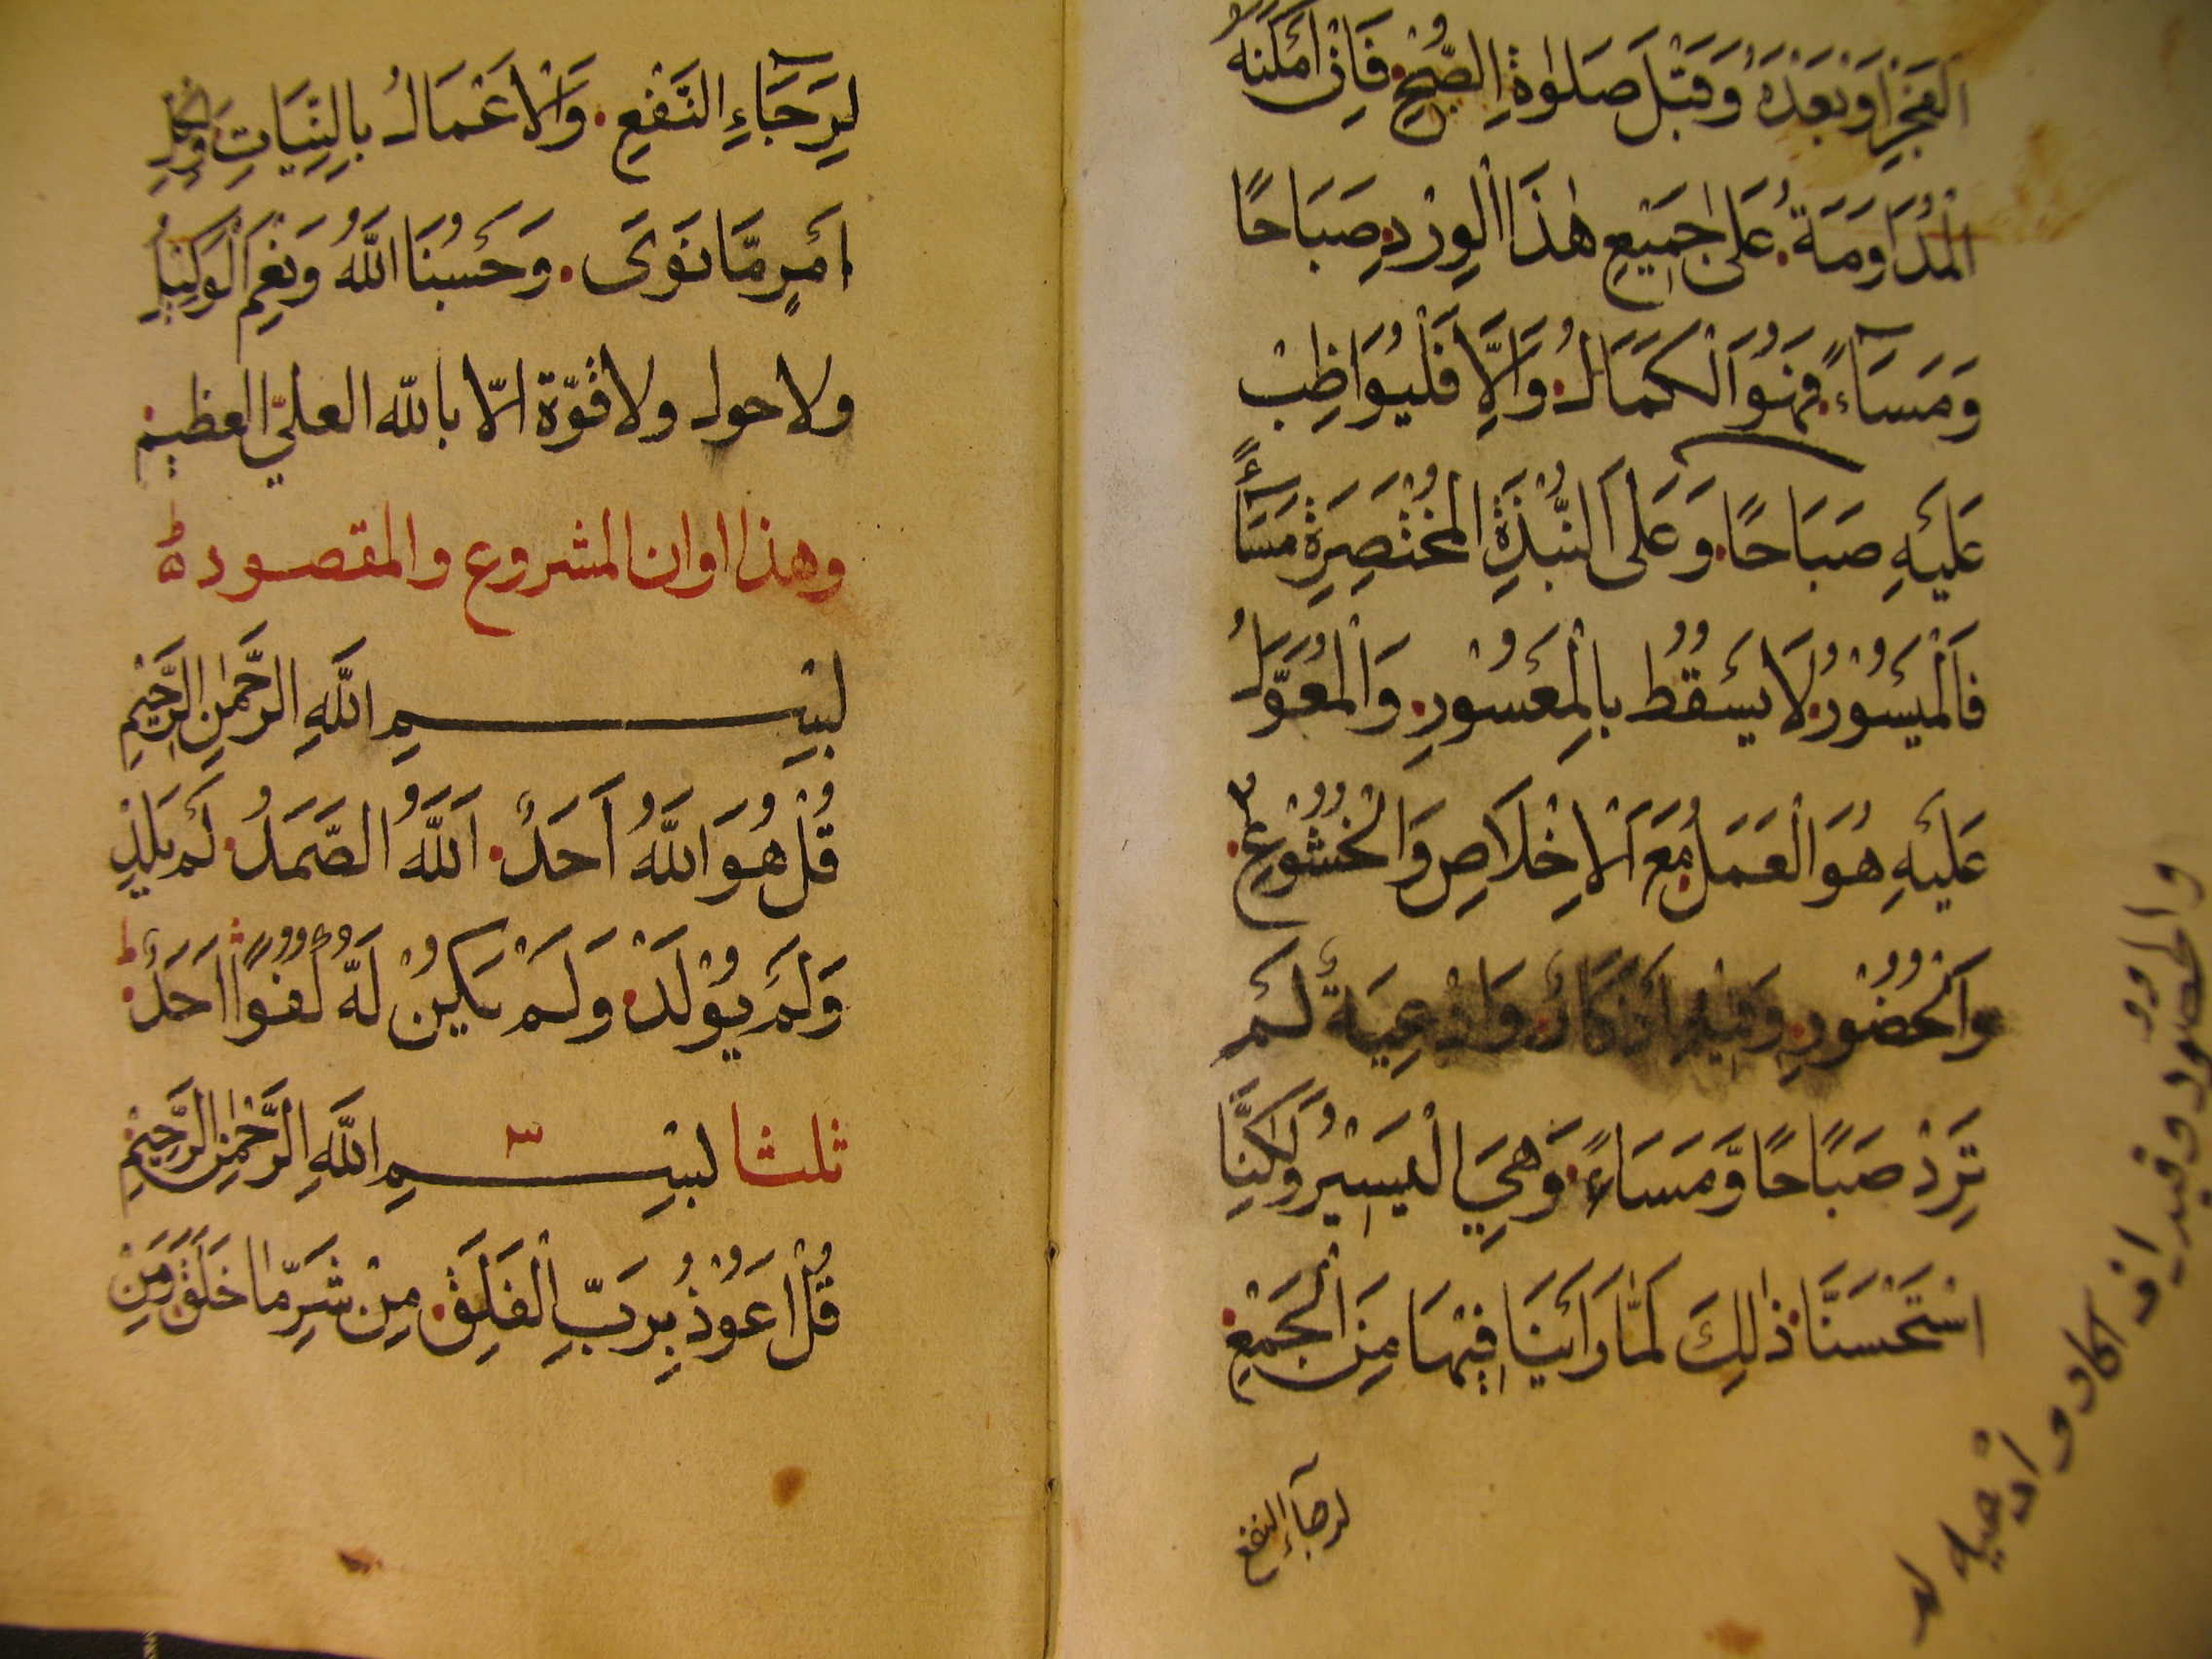 الْفَجْرِ اَوْ بَعْدَهُ وَقَبْلَ صَلٰوةِ الصُّبْحِ فَاِنْ اَمْكَنَهُ
الْمُدَاوَمَةُ عَلٰى جَمِيْعِ هٰذَا الْوِرْدِ صَبَاحًا
وَمَسَآءً فَهُوَ الْكَمَالُ وَاِلَّا فَلْيُوَاظِبْ
عَلَيْهِ صَبَاحًا وَعَلَى النُّبْذَةِ الْمُخْتَصِرَةِ مَسَآءً
فَالْمَيْسُوْرُ لَا يَسْقُطُ بِالْمَعْسُوْرِ وَالْمُعَوَّلُ
عَلَيْهِ هُوَ الْعَمَلُ مَعَ الْاِخْلَاصِ وَالْخُشُوْعِ
وَالْحُضُوْرِ وَفِيْهِ اَذْكَارٌ وَاَدْعِيَةٌ لَمْ
تَرِدْ صَبَاحًا وَّمَسَاءً وَهِيَ الْيَسِيْرُ وَلٰكِنَّا
اسْتَحْسَنَّا ذٰلِكَ لَمَّا رَاَيْنَا فِيْهَا مِنَ الْجَمْعِ
لرجآءِ النفع
والحضور وفيه اذكار وادعية لم
لِرَجَآءِ النَّفْعِ وَالْاَعْمَالُ بِالنِّيَاتِ وَلِكُلِّ
امْرِءٍ مَّا نَوٰى وَحَسْبُنَا اللّٰهُ وَنِعْمَ الْوَكِيْلُ
ولا حول ولا قوّة الّا بالله العليّ العظيم
وهذا اوان المشروع والمقصود
بِسْمِ اللّٰهِ الرَّحْمٰنِ الرَّحِيْمِ
قُلْ هُوَ اللّٰهُ اَحَدٌ اَللّٰهُ الصَّمَدُ لَمْ يَلِدْ
وَلَمْ يُوْلَدْ وَلَمْ يَكُنْ لَهُ كُفُوًا اَحَدٌ
ثلثا ٣ بِسْمِ اللّٰهِ الرَّحْمٰنِ الرَّحِيْمِ
قُلْ اَعُوْذُ بِرَبِّ الْفَلَقِ مِنْ شَرِّ مَا خَلَقَ وَمِنْ